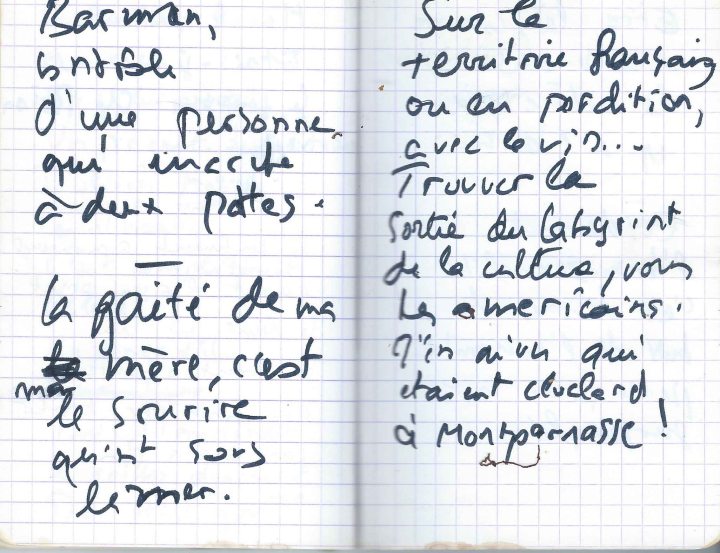 Barman,
d'une personne
qui marche
à deux pattes.
—
la gaité de ma
mère, c'est
le sourire
qu'int sous
la mer.
Sur le
territoire français
ou en perdition,
avec le vin...
Trouver la
sortie du labyrint
de la cultura, vous
les americains.
J'en ai vu qui
étaient cluclard
à Montparnasse!